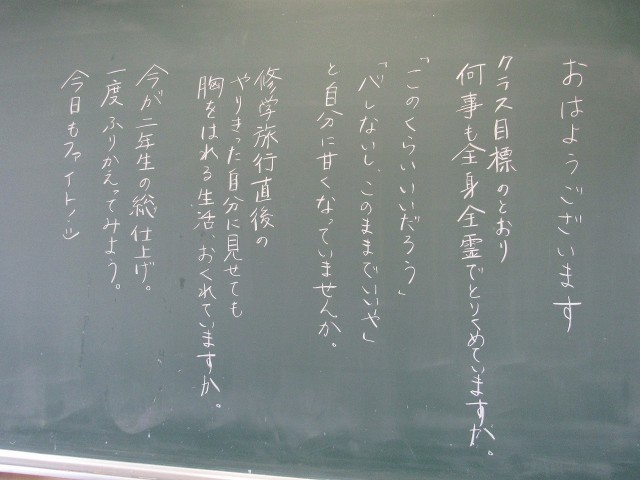 おはようございます
クラス目標のとおり
何事も全身全霊でとりくめていますか。
「このくらいいいだろう」
「バレないし、このままでいいや」
と自分に甘くなっていませんか。
修学旅行直後の
やりきった自分に見せても
胸をはれる生活、おくれていますか。
今が二年生の総仕上げ。
一度ふりかえってみよう。
今日もファイト！:)